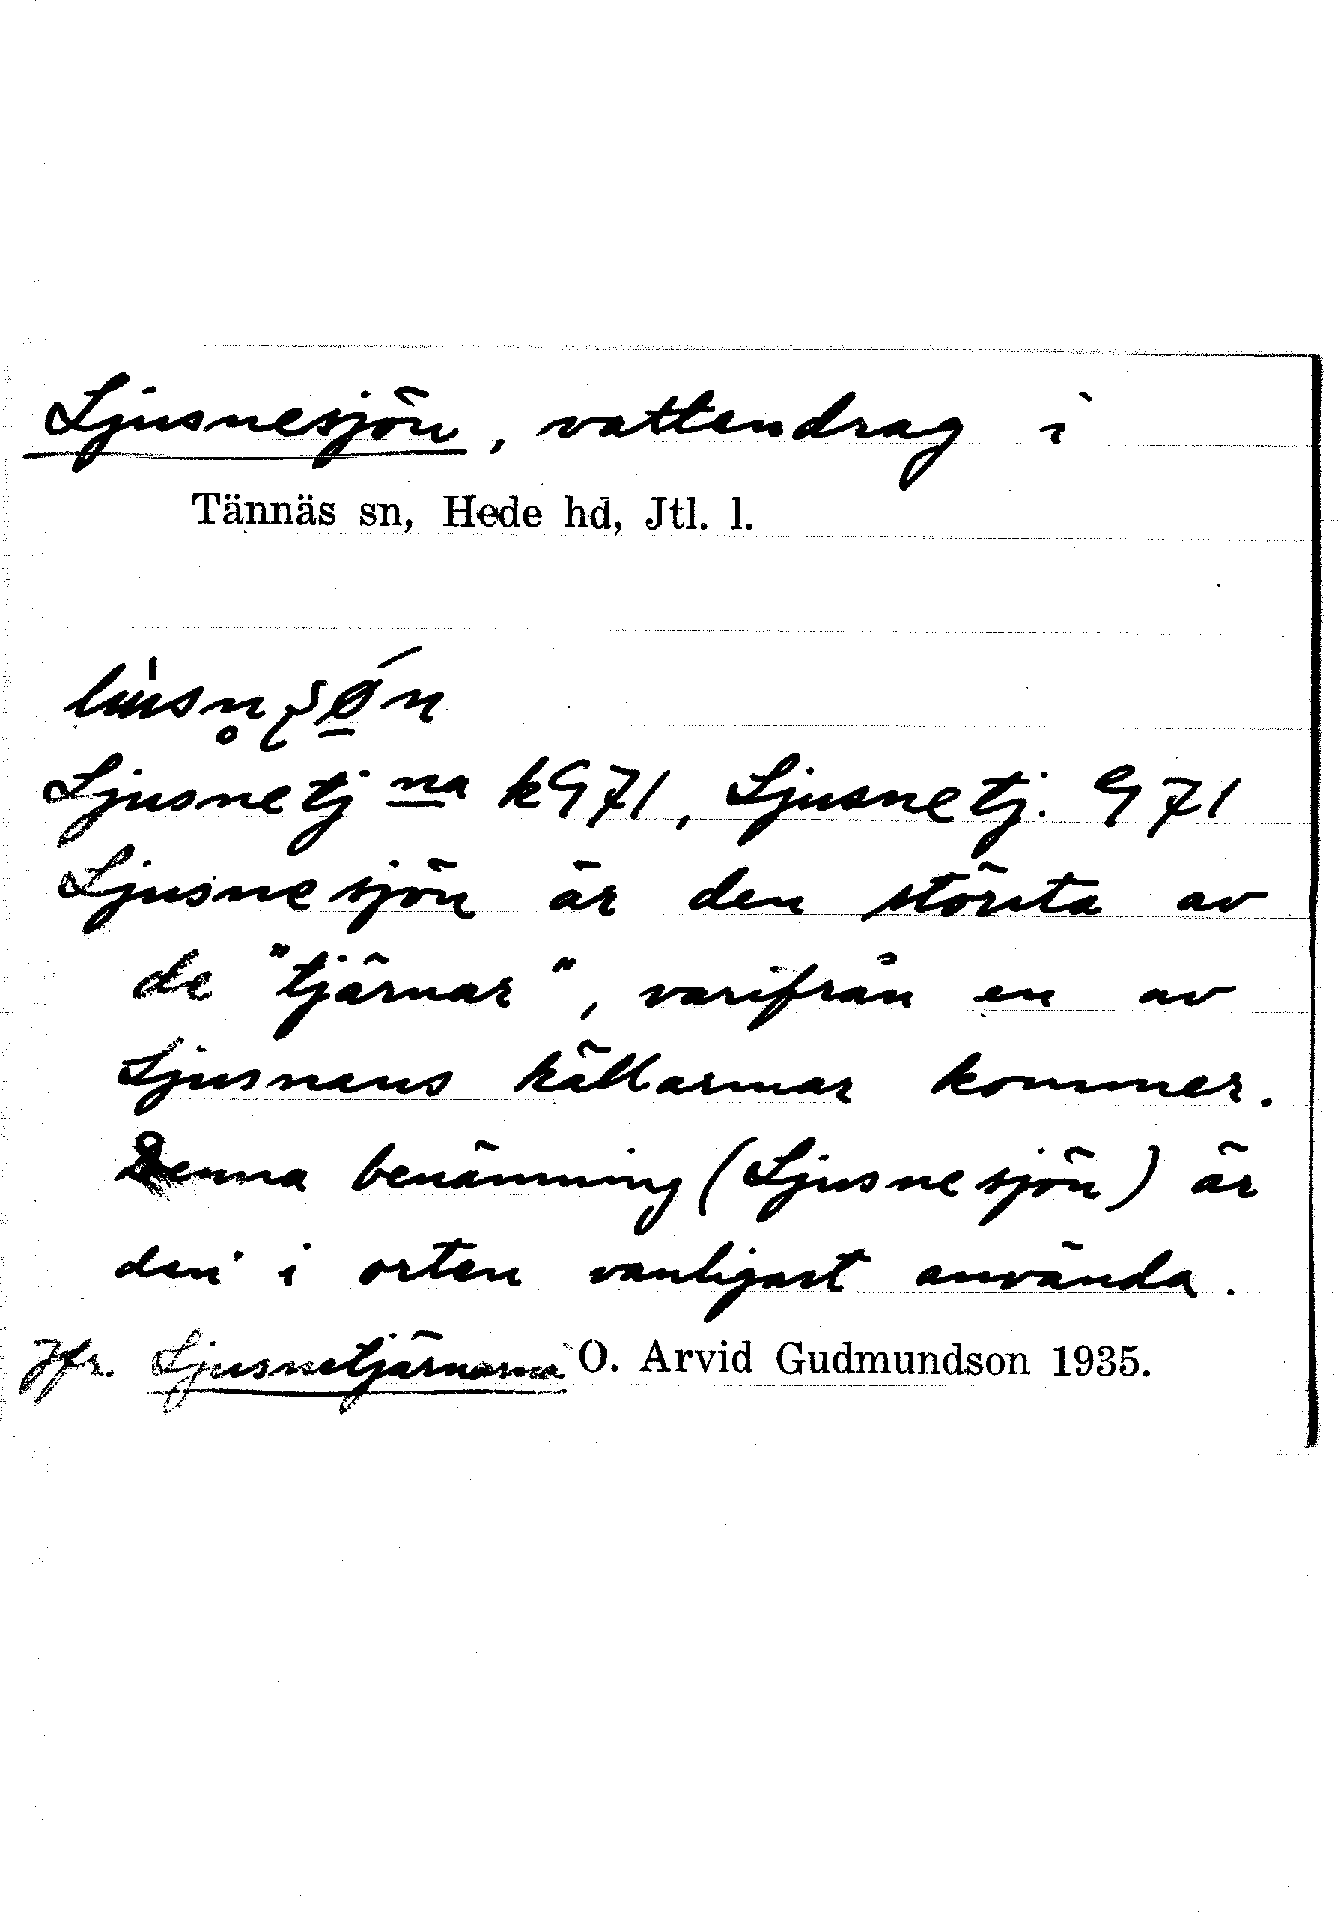 Ljusnesjön, vattendrag i
Tännäs sn, Hede hd, Jtl. l.
Ljusnetj na k G71, Ljusnetj. G 71
Ljusnesjön är den största av
de "tjärnar", varifrån en av
Ljusnans källarmar kommer.
Denna benämning (Ljusnesjön) är
den i orten vanligast använda.
Jfr. Ljusnetjärnarna O. Arvid Gudmundson 1935.